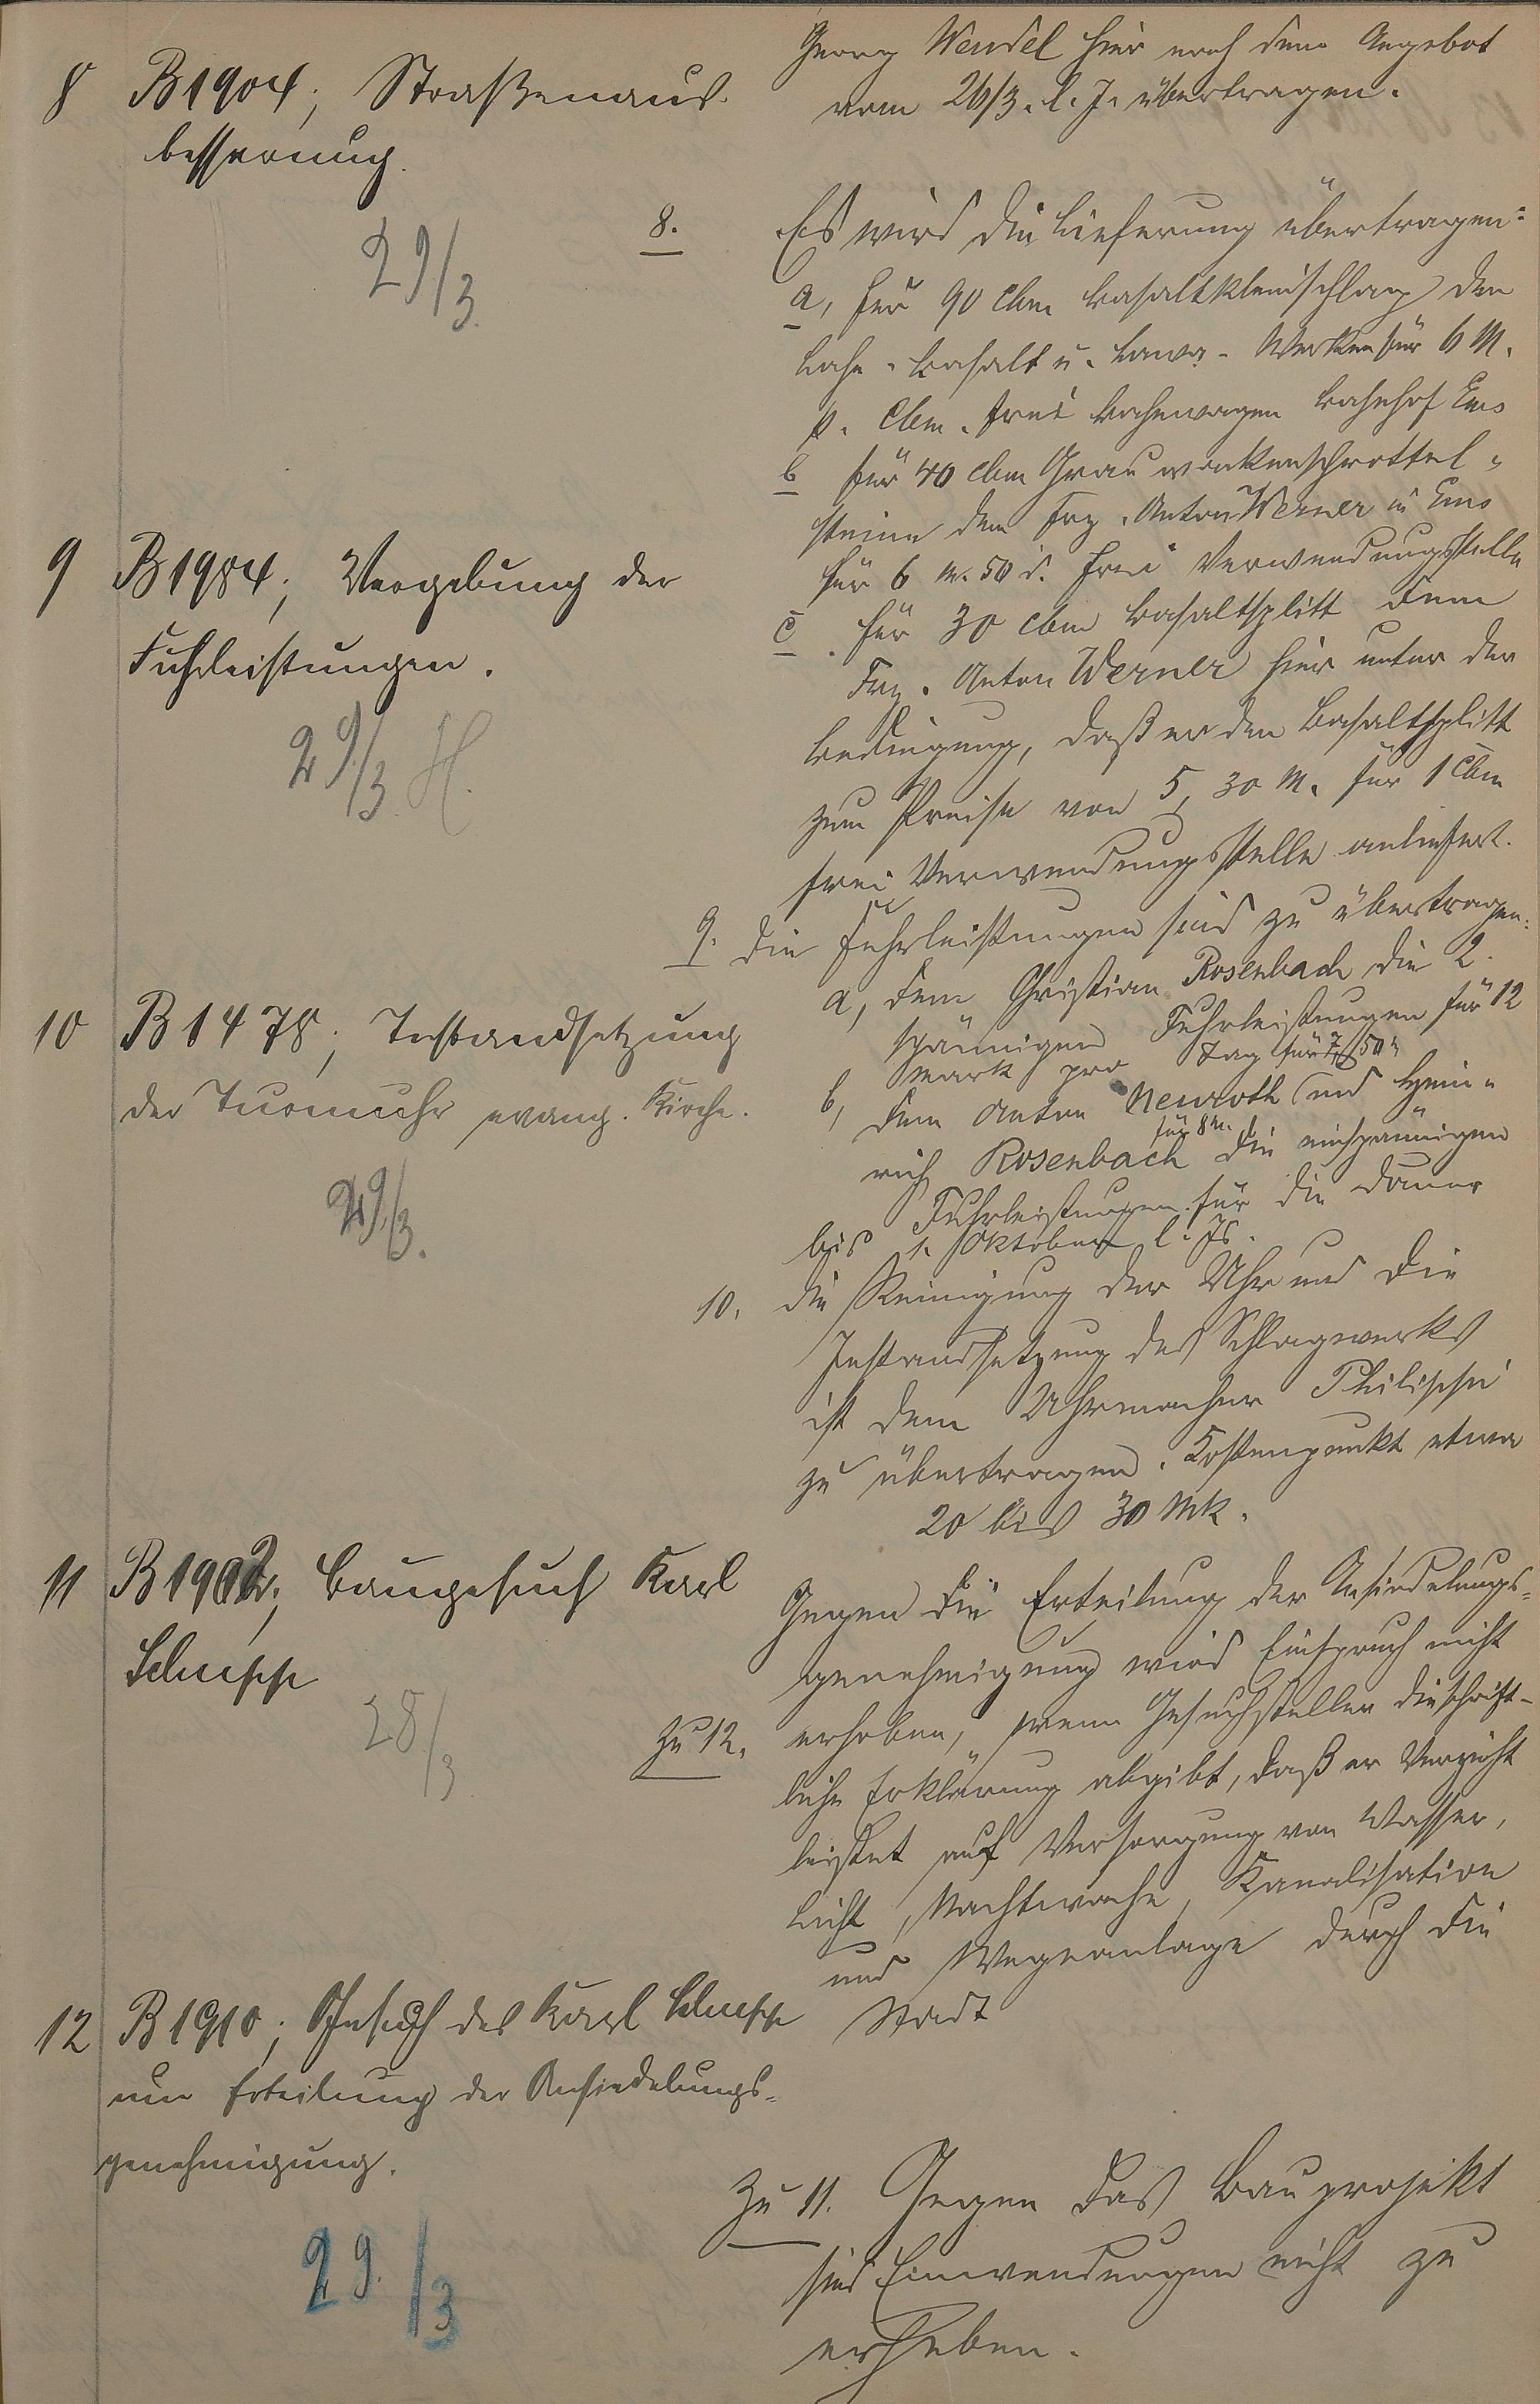 Georg Wendel hier nach dem Angebot
vom 26/3. l. J. übertragen.
8 B 1904; Straßenaus-
besserung.
29/3.
8. Es wird die Lieferung übertragen:
a, für 90 cbm Basaltkleinschlag den
Lahn-Basalt u. Lava-Werken für 6 M.
p. Cbm. frei Bahnwagen Bahnhof Ems
b für 40 cbm Grauwackenschrottel-
steine dem Frz. Anton Werner in Ems
für 6 M. 50 d. frei Verwendungsstelle
c. für 30 cbm Basaltsplitt dem
Frz. Anton Werner hier unter der
Bedingung, daß er den Basaltsplitt
zum Preise von 5,30 M. für 1 Cbm
frei Verwendungsstelle anliefert.
9 B 1984; Vergebung der
Fuhrleistungen.
29/3. H.
9. Die Fuhrleistungen sind zu übertragen:
a, dem Christian Rosenbach die 2-
spännigen Fuhrleistungen für 12
Mark pro Tag für 7,50 M
b, dem Anton Neuroth und Hein-
für 8 M.
rich Rosenbach die einspännigen
Fuhrleistungen für die Dauer
bis 1. Oktober l. Js.
10 B 1478; Instandsetzung
der Turmuhr evang. Kirche.
29/3.
10. Die Reinigung der Uhr und die
Instandsetzung des Schlagwerks
ist dem Uhrmacher Philippi
zu übertragen. Kostenpunkt etwa
20 bis 30 Mk.
11 B 1902; Baugesuch Karl
Schupp
28/3
Zu 12. Gegen die Erteilung der Ansiedelungs-
genehmigung wird Einspruch nicht
erhoben, wenn Gesuchsteller die schrift-
liche Erklärung abgibt, daß er Verzicht
leistet auf Versorgung von Wasser,
Licht, Nachtwache, Kanalisation
und Wegeanlage durch die
Stadt
12 B 1910; Gesuch des Karl Schupp
um Erteilung der Ansiedelungs-
genehmigung.
29./3
Zu 11. Gegen das Bauprojekt
sind Einwendungen nicht zu
erheben.